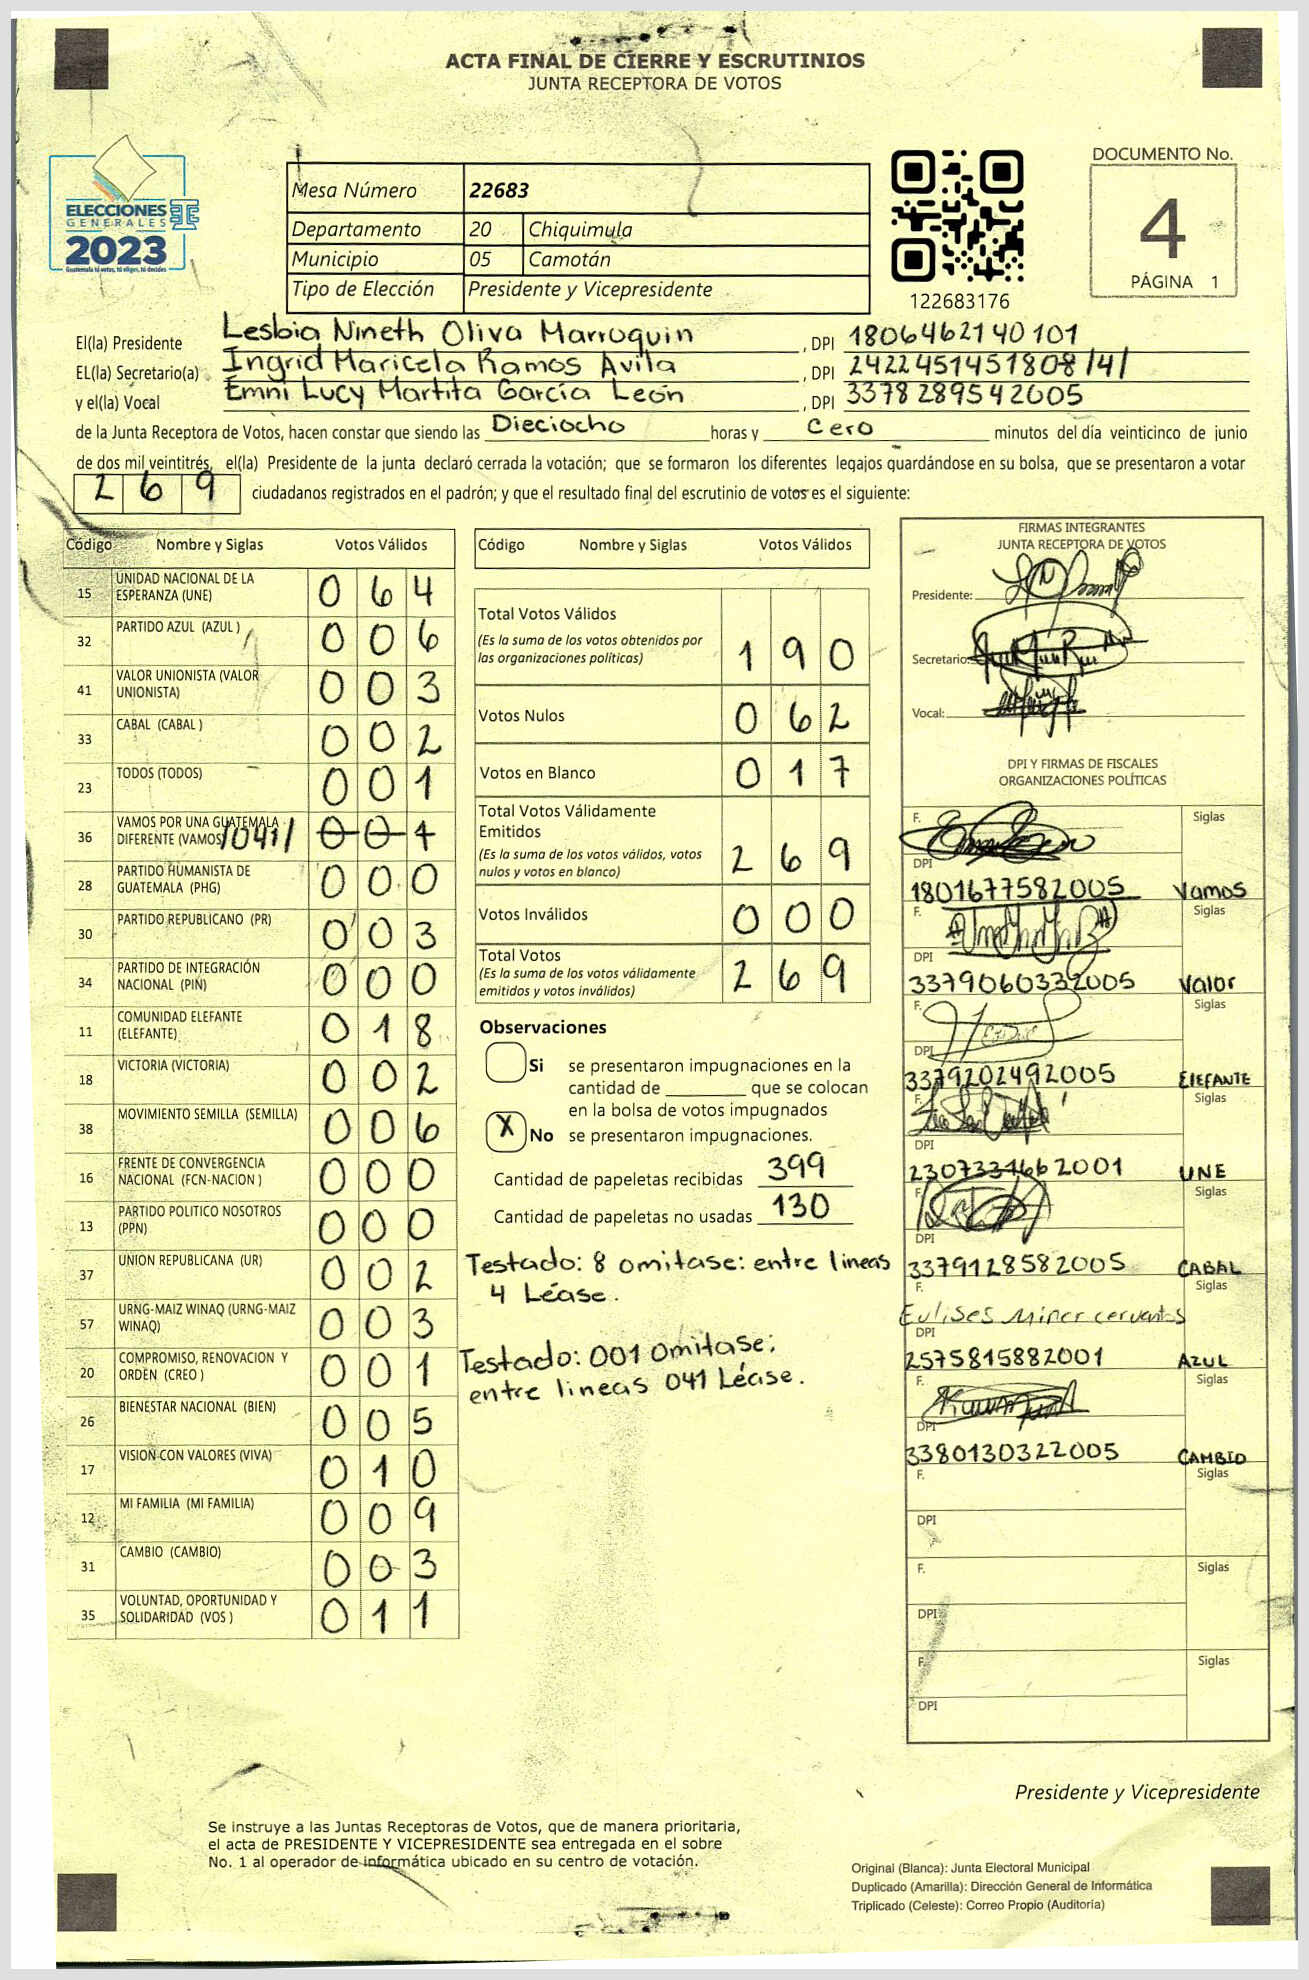 ACTA FINAL DE CIERRE Y ESCRUTINIOS
JUNTA RECEPTORA DE VOTOS
ELECCIONES
GENERALES
2023
Guatemala tú votas, tú eliges, tú decides
Mesa Número 22683
Departamento 20 Chiquimula
Municipio 05 Camotán
Tipo de Elección Presidente y Vicepresidente
122683176
DOCUMENTO No.
4
PÁGINA 1
El(la) Presidente Lesbia Nineth Oliva Marroquin , DPI 1806462140101
EL(la) Secretario(a) Ingrid Maricela Ramos Avila , DPI 2422451451808 /4/
y el(la) Vocal Emni Lucy Martita García León , DPI 3378289542005
de la Junta Receptora de Votos, hacen constar que siendo las Dieciocho horas y Cero minutos del día veinticinco de junio
de dos mil veintitrés, el(la) Presidente de la junta declaró cerrada la votación; que se formaron los diferentes legajos guardándose en su bolsa, que se presentaron a votar
269 ciudadanos registrados en el padrón; y que el resultado final del escrutinio de votos es el siguiente:
Código Nombre y Siglas Votos Válidos
15 UNIDAD NACIONAL DE LA ESPERANZA (UNE) 064
32 PARTIDO AZUL (AZUL ) 006
41 VALOR UNIONISTA (VALOR UNIONISTA) 003
33 CABAL (CABAL ) 002
23 TODOS (TODOS) 001
36 VAMOS POR UNA GUATEMALA DIFERENTE (VAMOS) /041/ 001
28 PARTIDO HUMANISTA DE GUATEMALA (PHG) 000
30 PARTIDO REPUBLICANO (PR) 003
34 PARTIDO DE INTEGRACIÓN NACIONAL (PIN) 000
11 COMUNIDAD ELEFANTE (ELEFANTE) 018
18 VICTORIA (VICTORIA) 002
38 MOVIMIENTO SEMILLA (SEMILLA) 006
16 FRENTE DE CONVERGENCIA NACIONAL (FCN-NACION ) 000
13 PARTIDO POLITICO NOSOTROS (PPN) 000
37 UNION REPUBLICANA (UR) 002
57 URNG-MAIZ WINAQ (URNG-MAIZ WINAQ) 003
20 COMPROMISO, RENOVACION Y ORDEN (CREO ) 001
26 BIENESTAR NACIONAL (BIEN) 005
17 VISION CON VALORES (VIVA) 010
12 MI FAMILIA (MI FAMILIA) 009
31 CAMBIO (CAMBIO) 003
35 VOLUNTAD, OPORTUNIDAD Y SOLIDARIDAD (VOS ) 011
Código Nombre y Siglas Votos Válidos
Total Votos Válidos
(Es la suma de los votos obtenidos por
las organizaciones políticas) 190
Votos Nulos 062
Votos en Blanco 017
Total Votos Válidamente
Emitidos
(Es la suma de los votos válidos, votos
nulos y votos en blanco) 269
Votos Inválidos 000
Total Votos
(Es la suma de los votos válidamente
emitidos y votos inválidos) 269
Observaciones
Si se presentaron impugnaciones en la
cantidad de ________ que se colocan
en la bolsa de votos impugnados
X No se presentaron impugnaciones.
Cantidad de papeletas recibidas 399
Cantidad de papeletas no usadas 130
Testado: 8 omitase: entre lineas
4 Léase.
Testado: 001 Omitase;
entre lineas 041 Léase.
FIRMAS INTEGRANTES
JUNTA RECEPTORA DE VOTOS
Presidente:
Secretario:
Vocal:
DPI Y FIRMAS DE FISCALES
ORGANIZACIONES POLÍTICAS
F. Siglas
DPI
1801677582005 Vamos
F. Siglas
DPI
3379060332005 Valor
F. Siglas
DPI
3379202492005 ElEFANTE
F. Siglas
DPI
2307331662001 UNE
F. Siglas
DPI
3379128582005 CABAL
F. Siglas
Eulises Miner cervantes
DPI
2575815882001 AZUL
F. Siglas
DPI
3380130322005 CAMBIO
F. Siglas
DPI
F. Siglas
DPI
F. Siglas
DPI
Presidente y Vicepresidente
Se instruye a las Juntas Receptoras de Votos, que de manera prioritaria,
el acta de PRESIDENTE Y VICEPRESIDENTE sea entregada en el sobre
No. 1 al operador de informática ubicado en su centro de votación.
Original (Blanca): Junta Electoral Municipal
Duplicado (Amarilla): Dirección General de Informática
Triplicado (Celeste): Correo Propio (Auditoría)